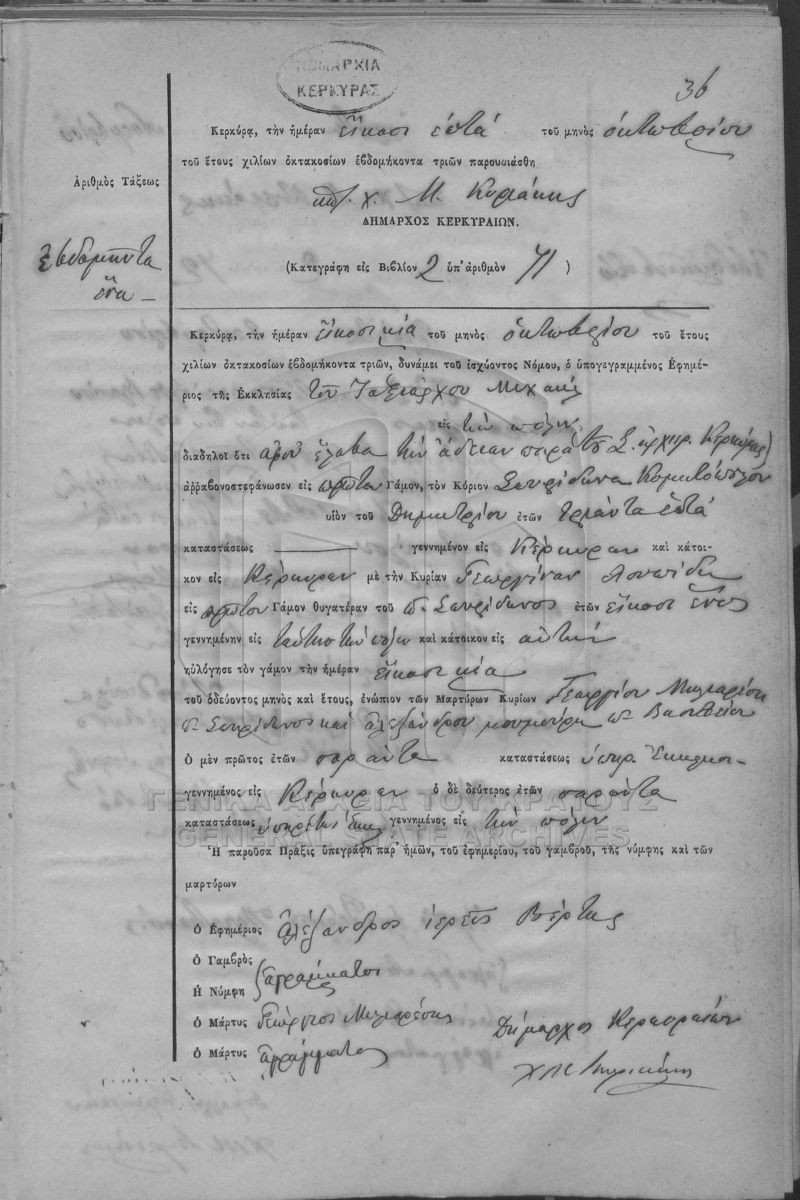 ΝΟΜΑΡΧΙΑ
ΚΕΡΚΥΡΑΣ
36
Κερκύρᾳ, τὴν ἡμέραν εἴκοσι ἑπτά τοῦ μηνὸς ὀκτωβρίου
τοῦ ἔτους χιλίων ὀκτακοσίων ἑβδομήκοντα τριῶν παρουσιάσθη
Ἀριθμὸς Τάξεως
Χ. Μ. Κυριάκης
ΔΗΜΑΡΧΟΣ ΚΕΡΚΥΡΑΙΩΝ.
ἑβδομῆντα
ἕνα –
(Κατεγράφη εἰς Βιβλίον 2 ὑπ' ἀριθμὸν 71)
Κερκύρᾳ, τὴν ἡμέραν εἴκοσι μία τοῦ μηνὸς ὀκτωβρίου τοῦ ἔτους
χιλίων ὀκτακοσίων ἑβδομήκοντα τριῶν, δυνάμει τοῦ ἰσχύοντος Νόμου, ὁ ὑπογεγραμμένος Ἐφημέ-
ριος τῆς Ἐκκλησίας τοῦ Ταξιάρχου Μιχαήλ
εἰς τὴν πόλιν
διαδηλοῖ ὅτι ἀφοῦ ἔλαβα τὴν ἄδειαν παρὰ τοῦ Σ. ἀρχιερ. Κερκύρας)
ἀρραβονοστεφάνωσεν εἰς πρῶτον Γάμον, τὸν Κύριον Σπυρίδωνα Κομητόπουλον
υἱὸν τοῦ Δημητρίου ἐτῶν τριάντα ἑπτά
καταστάσεως γεννημένον εἰς Κέρκυραν καὶ κάτοι-
κον εἰς Κέρκυραν μὲ τὴν Κυρίαν Γεωργίναν
εἰς πρῶτον Γάμον θυγατέραν τοῦ π. Σπυρίδωνος ἐτῶν εἴκοσι ἑνός
γεννημένην εἰς ταύτην τὴν πόλιν καὶ κάτοικον εἰς αὐτήν
ηὐλόγησε τὸν γάμον τὴν ἡμέραν εἴκοσι μία
τοῦ ὁδεύοντος μηνὸς καὶ ἔτους, ἐνώπιον τῶν Μαρτύρων Κυρίων Γεωργίου Μηλιαρέση
π. Σπυρίδωνος καὶ ἀλεξάνδρου μουμούρη π. Βασιλείου
Ὁ μὲν πρῶτος ἐτῶν σαράντα καταστάσεως ὑπηρ.
γεννημένος εἰς Κέρκυραν ὁ δὲ δεύτερος ἐτῶν σαράντα
ΓΕΝΙΚΑ ΑΡΧΕΙΑ ΤΟΥ ΚΡΑΤΟΥΣ
καταστάσεως ὑπηρέτης γεννημένος εἰς τὴν πόλιν
GENERAL STATE ARCHIVES
Ἡ παροῦσα Πρᾶξις ὑπεγράφη παρ' ἡμῶν, τοῦ ἐφημερίου, τοῦ γαμβροῦ, τῆς νύμφης καὶ τῶν
μαρτύρων
ὁ Ἐφημέριος ἀλέξανδρος ἱερεὺς Βέρτης
ὁ Γαμβρὸς
ἀγράμματοι
Ἡ Νύμφη
ὁ Μάρτυς Γεώργιος Μηλιαρέσης
Δήμαρχος Κερκυραίων
ὁ Μάρτυς ἀγράμματος
Χ Μ Κυριάκης